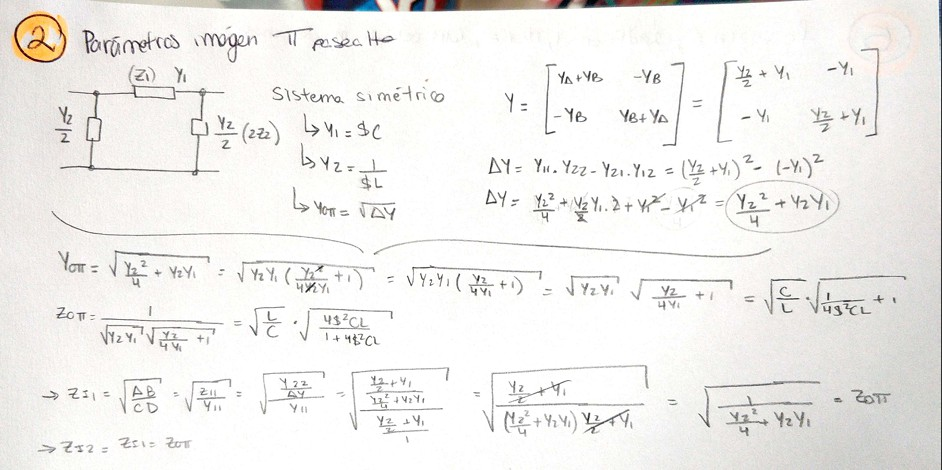 2 Parámetros imágen π pasa Alto
(Z1) Y1
Y2/2
Y2/2 (2Z2)
Sistema simétrico
↳ Y1 = $C
↳ Y2 = 1/$L
↳ Y0π = √ΔY
Y = [YA+YB -YB; -YB YB+YA] = [Y2/2 + Y1 -Y1; -Y1 Y2/2 + Y1]
ΔY = Y11 . Y22 - Y21 . Y12 = (Y2/2 + Y1)² - (-Y1)²
ΔY = Y2²/4 + Y2/2 Y1 . 2 + Y1² - Y1² = Y2²/4 + Y2Y1
Y0π = √(Y2²/4 + Y2Y1) = √(Y2Y1 (Y2²/4Y2Y1 + 1)) = √(Y2Y1 (Y2/4Y1 + 1)) = √(Y2Y1) √(Y2/4Y1 + 1) = √(C/L) . √(1/4$²CL + 1)
Z0π = 1/(√(Y2Y1) √(Y2/4Y1 + 1)) = √(L/C) . √(4$²CL/(1+4$²CL))
→ ZI1 = √(AB/CD) = √(Z11/Y11) = √((Y22/ΔY)/Y11) = √(((Y2/2 + Y1)/(Y2²/4 + Y2Y1))/((Y2/2 + Y1)/1)) = √((Y2/2 + Y1)/((Y2²/4 + Y2Y1) (Y2/2 + Y1))) = √(1/(Y2²/4 + Y2Y1)) = Z0π
→ ZI2 = ZI1 = Z0π